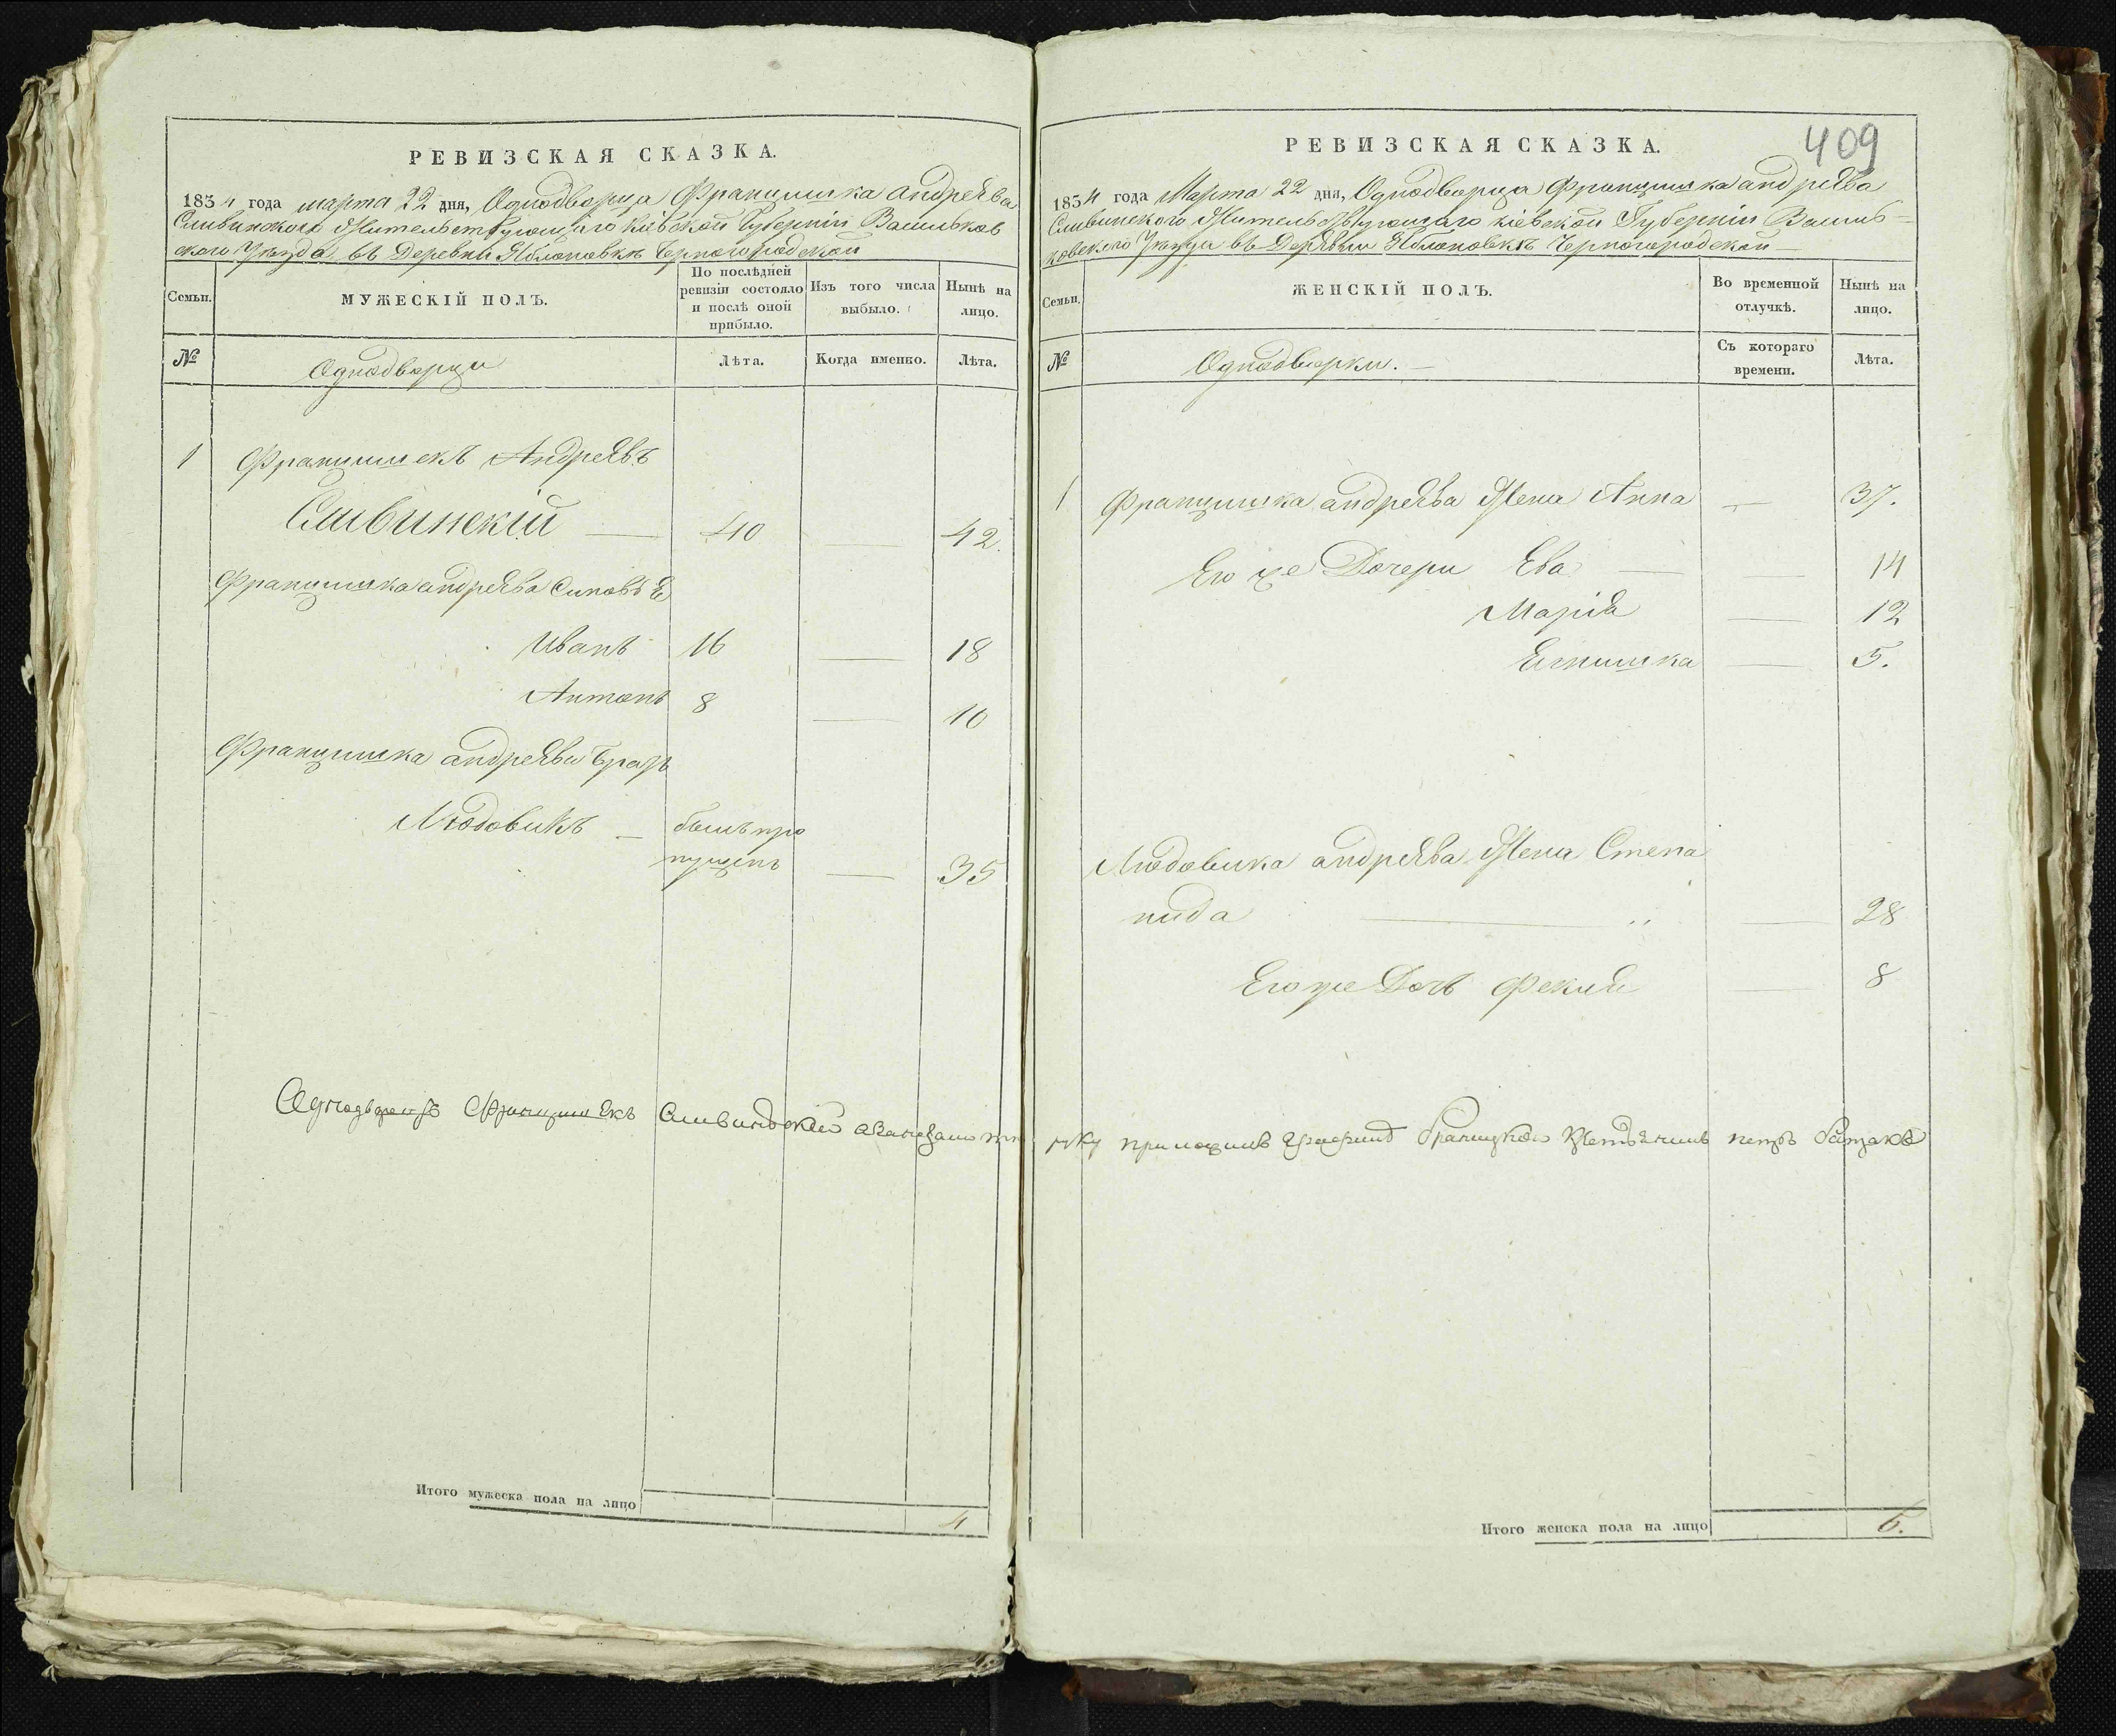 РЕВИЗСКАЯ СКАЗКА.
1834 года марта 22 дня, Однодворца Францишка андреева
Сливинского Жительствующаго Кіевской Губерніи Васильков
ского Уезда въ Деревни Яблоновкъ Черногородской
Семьи.
МУЖЕСКІЙ ПОЛЪ.
По послѣдней ревизіи состояло и послѣ оной прибыло.
Изъ того числа выбыло.
Нынѣ на лицо.
№
Однодворци
Лѣта.
Когда именно.
Лѣта.
1 Францишекъ Андреевъ
Сливинскій — 40 — 42.
Францишка андреева синовъе
Иванъ 16 — 18
Антонъ 8 — 10
Францишка андреева братъ
Людовикъ — былъ про
пущенъ — 35
Однодворецъ Францишекъ Сливинскій
Итого мужеска пола на лицо
4
409
РЕВИЗСКАЯ СКАЗКА.
1834 года Марта 22 дня, Однодворца Францишка андреева
Сливинского Жительствующаго Кіевской Губерніи Василь-
ковского Уезда въ Деревни Яблоновкъ Черногородской
Семьи.
ЖЕНСКІЙ ПОЛЪ.
Во временной отлучкѣ.
Нынѣ на лицо.
№
Однодворки. —
Съ котораго времени.
Лѣта.
1 Францишка андреева Жена Анна — 37.
Его же Дочери Ева — — 14
Марія — 12
— 5.
Людовика андреева Жена Степа
нида — — 28
Его же Дочь — 8
руку приложилъ
Итого женска пола на лицо
6.